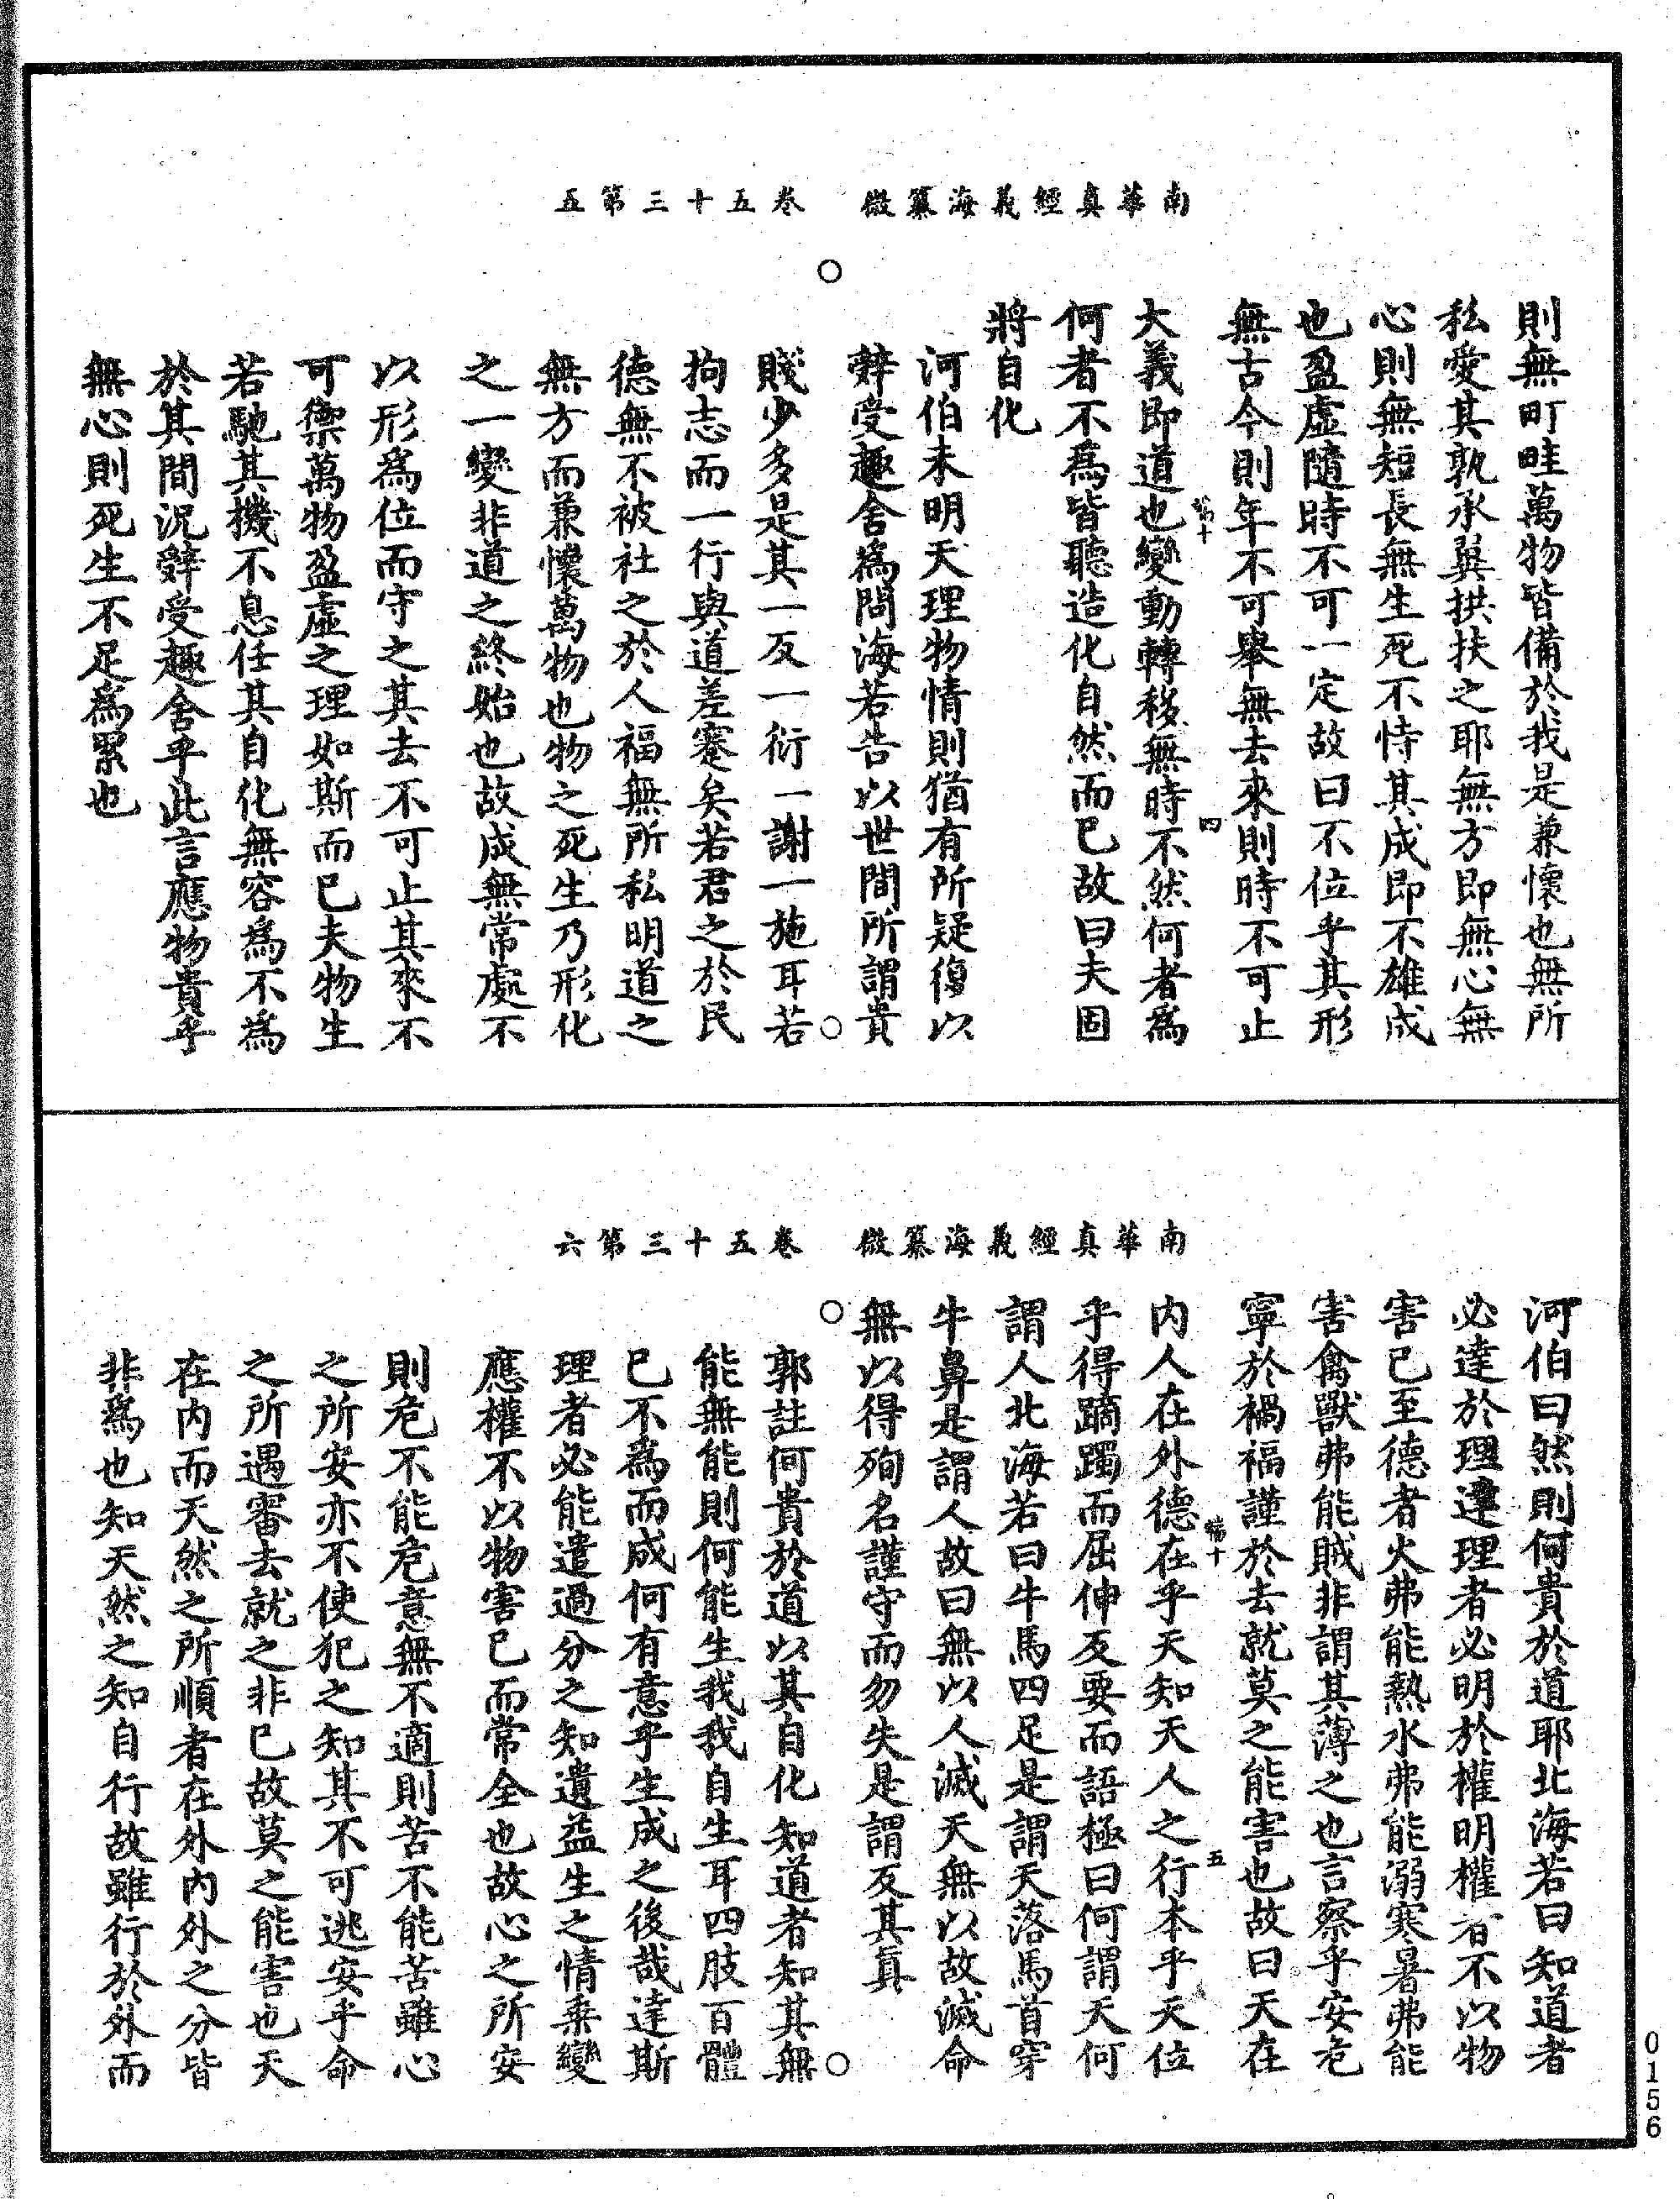 南華真經義海纂微　卷五十三第五
則無町畦萬物皆備於我是兼懷也無所
私愛其孰承與拱扶之耶無方即無心無
心則無短長無生死不恃其成即不雄成
也盈虛隨時不可一定故曰不位乎其形
無古今則年不可舉無去來則時不可止
大義即道也變動轉移無時不然何者為
何者不為皆聽造化自然而已故曰夫固
將自化
河伯未明天理物情則猶有所疑復以
辭受趣舍為問海若告以世間所謂貴
賤少多是其一反一衍一謝一施耳若
拘志而一行與道差蹇矣若君之於民
德無不被社之於人福無所私明道之
無方而兼懷萬物也物之死生乃形化
之一變非道之終始也故成無常處不
以形為位而守之其去不可止其來不
可禦萬物盈虛之理如斯而已夫物生
若馳其機不息任其自化無容為不為
於其間況辭受趣舍乎此言應物貴乎
無心則死生不足為累也
南華真經義海纂微　卷五十三第六
河伯曰然則何貴於道耶北海若曰知道者
必達於理達理者必明於權明權者不以物
害己至德者火弗能熱水弗能溺寒暑弗能
害禽獸弗能賊非謂其薄之也言察乎安危
寧於禍福謹於去就莫之能害也故曰天在
内人在外德在乎天知天人之行本乎天位
乎得蹢躅而屈伸反要而語極曰何謂天何
謂人北海若曰牛馬四足是謂天落馬首穿
牛鼻是謂人故曰無以人滅天無以故滅命
無以得殉名謹守而勿失是謂反其真
郭註何貴於道以其自化知道者知其無
能無能則何能生我我自生耳四肢百體
已不為而成何有意乎生成之後哉達斯
理者必能遣過分之知遺益生之情乘變
應權不以物害已而常全也故心之所安
則危不能危意無不適則苦不能苦雖心
之所安亦不使犯之知其不可逃安乎命
之所遇審去就之非已故莫之能害也天
在内而天然之所順者在外内外之分皆
非為也知天然之知自行故雖行於外而
0156